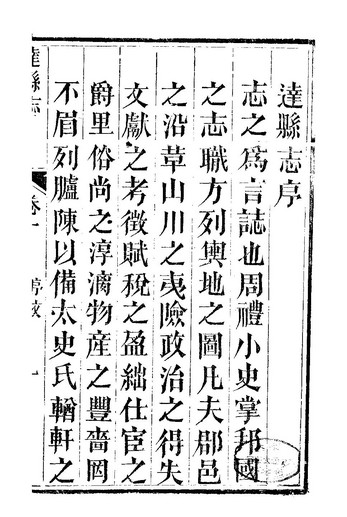 達縣志序
志之爲言誌也周禮小史掌邦國
之志職方列輿地之圖凡夫郡邑
之沿革山川之夷險政治之得失
文獻之考徵賦稅之盈絀仕宦之
爵里俗尚之淳漓物産之豐嗇罔
不眉列臚陳以備太史氏輶軒之
達縣志
卷一